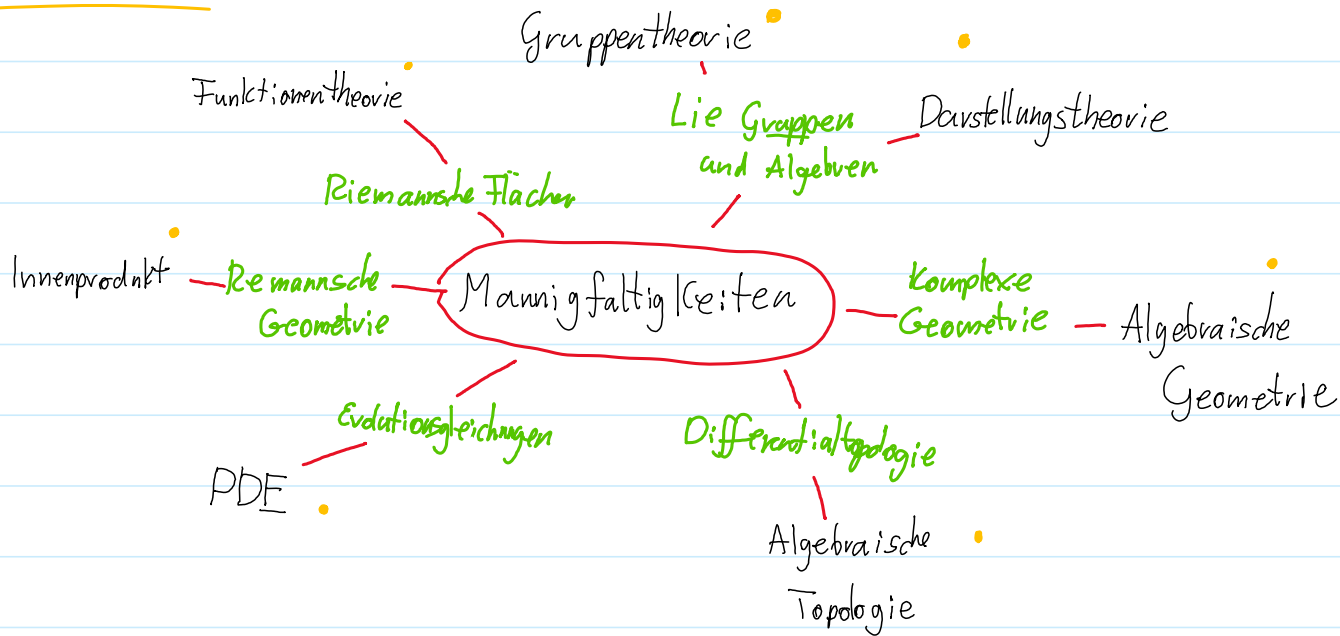 Gruppentheorie
Funktionentheorie
Lie Gruppen
und Algebren
Darstellungstheorie
Riemannsche Flächen
Innenprodukt
Remannsche
Geometrie
Mannigfaltigkeiten
Komplexe
Geometrie
Algebraische
Geometrie
Evolutionsgleichungen
Differentialtopologie
PDE
Algebraische
Topologie